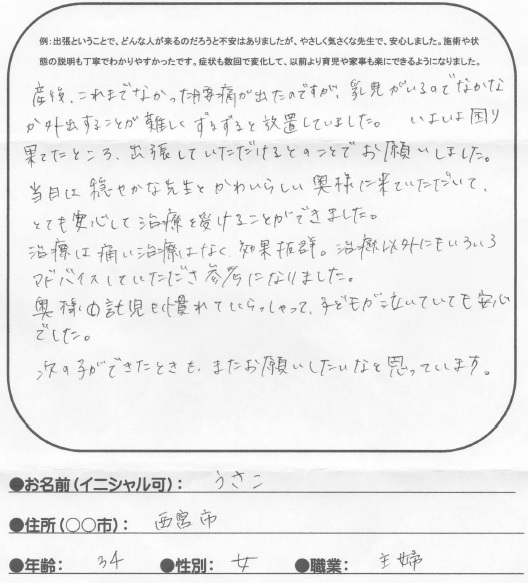 例:出張ということで、どんな人が来るのだろうと不安はありましたが、やさしく気さくな先生で、安心しました。施術や状
態の説明も丁寧でわかりやすかったです。症状も数回で変化して、以前より育児や家事も楽にできるようになりました。
産後、これまでなかった腰痛が出たのですが、乳児がいるのでなかな
か外出することが難しくずるずると放置していました。 いよいよ困り
果てたところ、出張していただけるとのことでお願いしました。
当日は穏やかな先生とかわいらしい奥様に来ていただいて、
とても安心して治療を受けることができました。
治療は痛い治療はなく、効果抜群。治療以外にもいろいろ
アドバイスしていただき参考になりました。
奥様も託児も慣れていらっしゃって、子どもが泣いていても安心
でした。
次の子ができたときも、またお願いしたいなと思っています。
●お名前(イニシャル可): うさこ
●住所(〇〇市): 西宮市
●年齢: 34 ●性別: 女 ●職業: 主婦